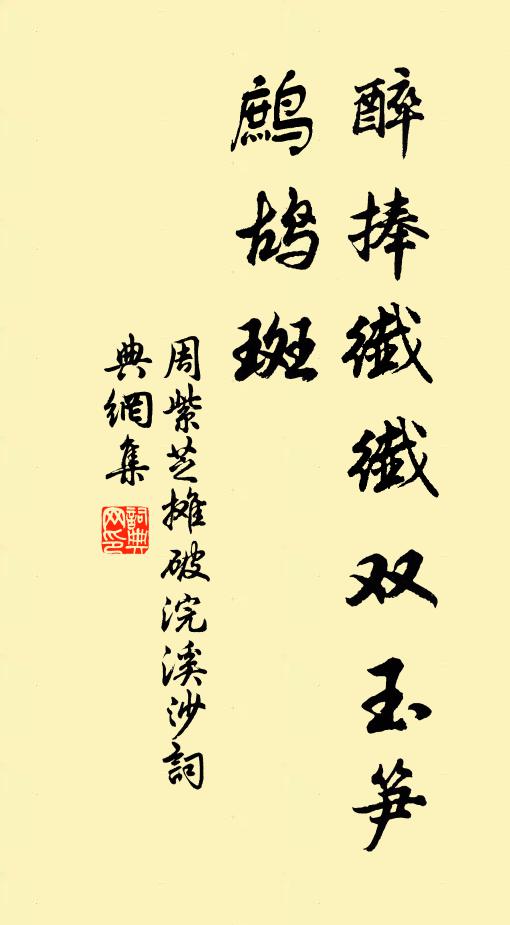 醉捧纖纖双玉笋
鷓鴣斑
周紫芝摊破浣溪沙詞
典網集
詞典网印